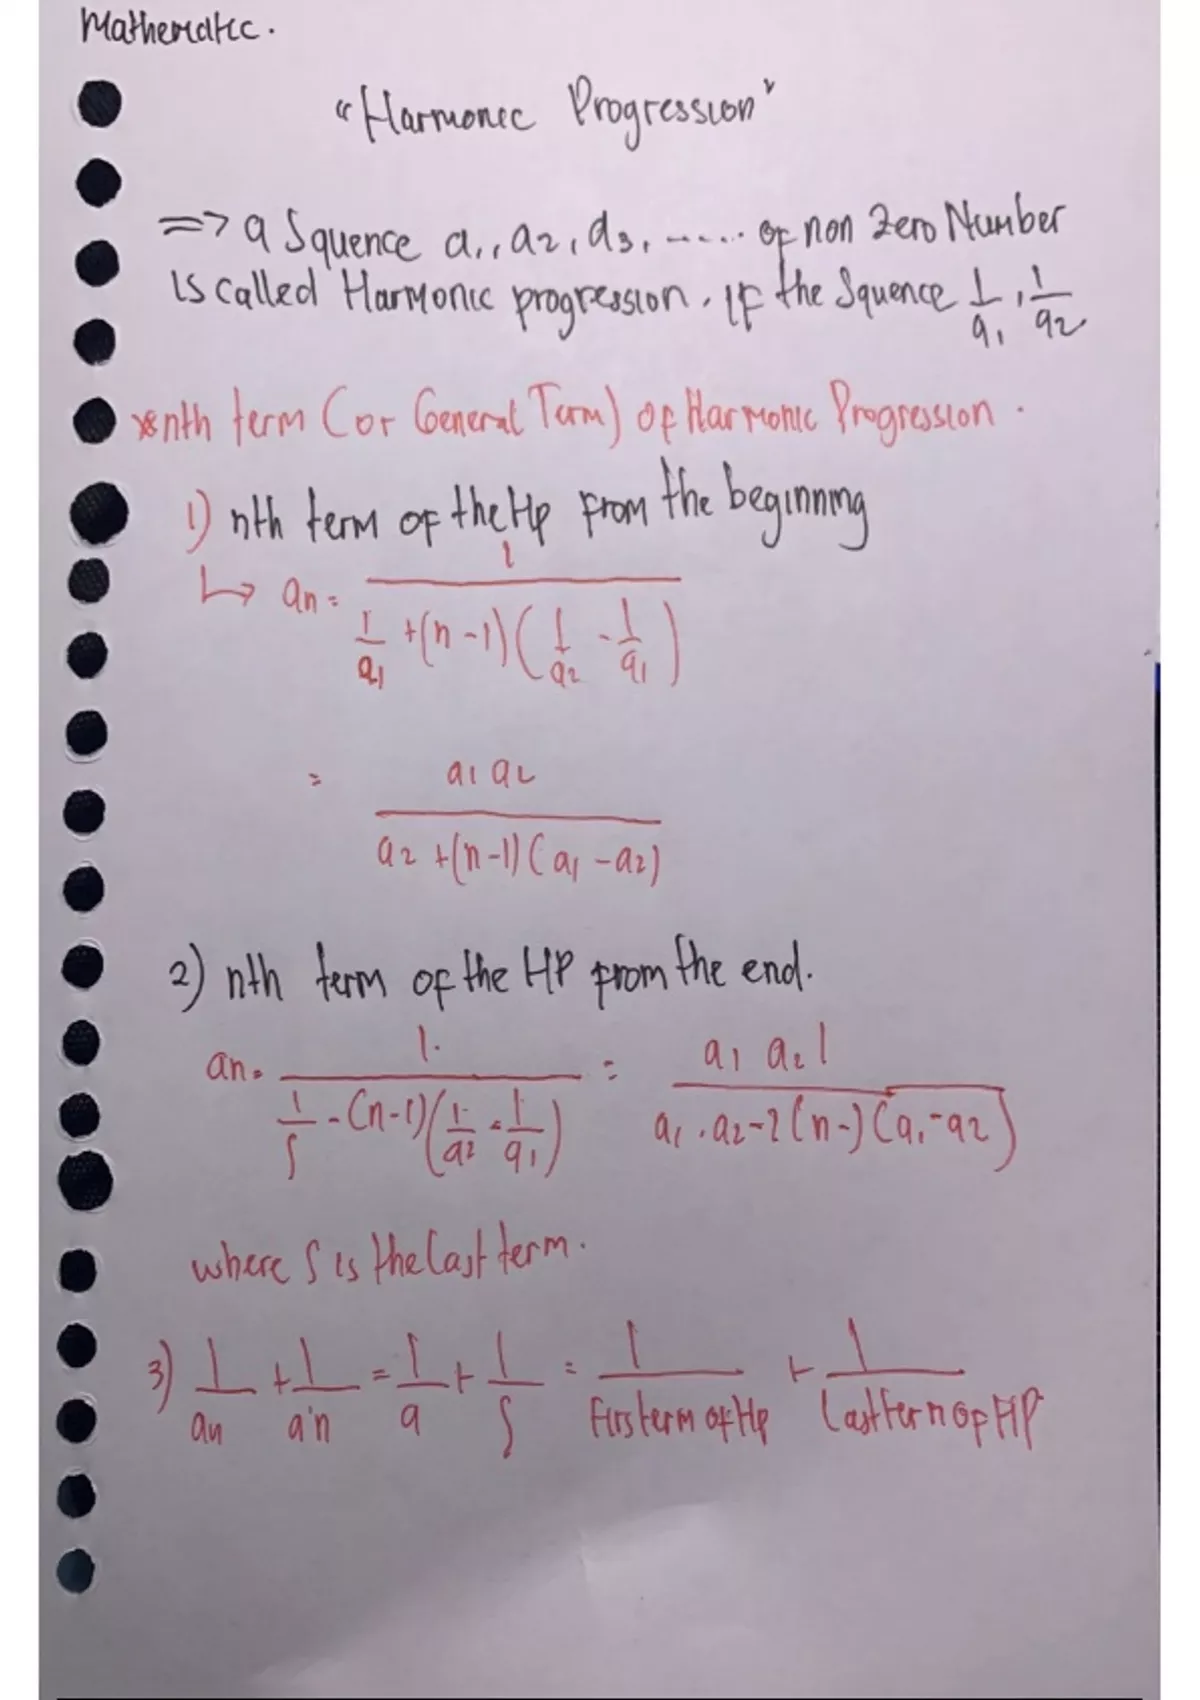 Mathematic.
"Harmonic Progression"
=> a Squence a1, a2, a3, ..... of non Zero Number
is called Harmonic progression. If the Squence 1/a1, 1/a2
nth term (or General Term) of Harmonic Progression.
1) nth term of the Hp from the beginning
↳ an = 1 / (1/a1 + (n-1)(1/a2 - 1/a1))
= a1 a2 / (a2 + (n-1)(a1 - a2))
2) nth term of the HP from the end.
an = 1. / (1/ʃ - (n-1)(1/a2 - 1/a1)) = a1 a2 l / (a1 . a2 - 2(n-)(a1 - a2))
where ʃ is the last term.
3) 1/an + 1/a'n = 1/a + 1/ʃ = 1/firsterm of Hp + 1/last term of HP